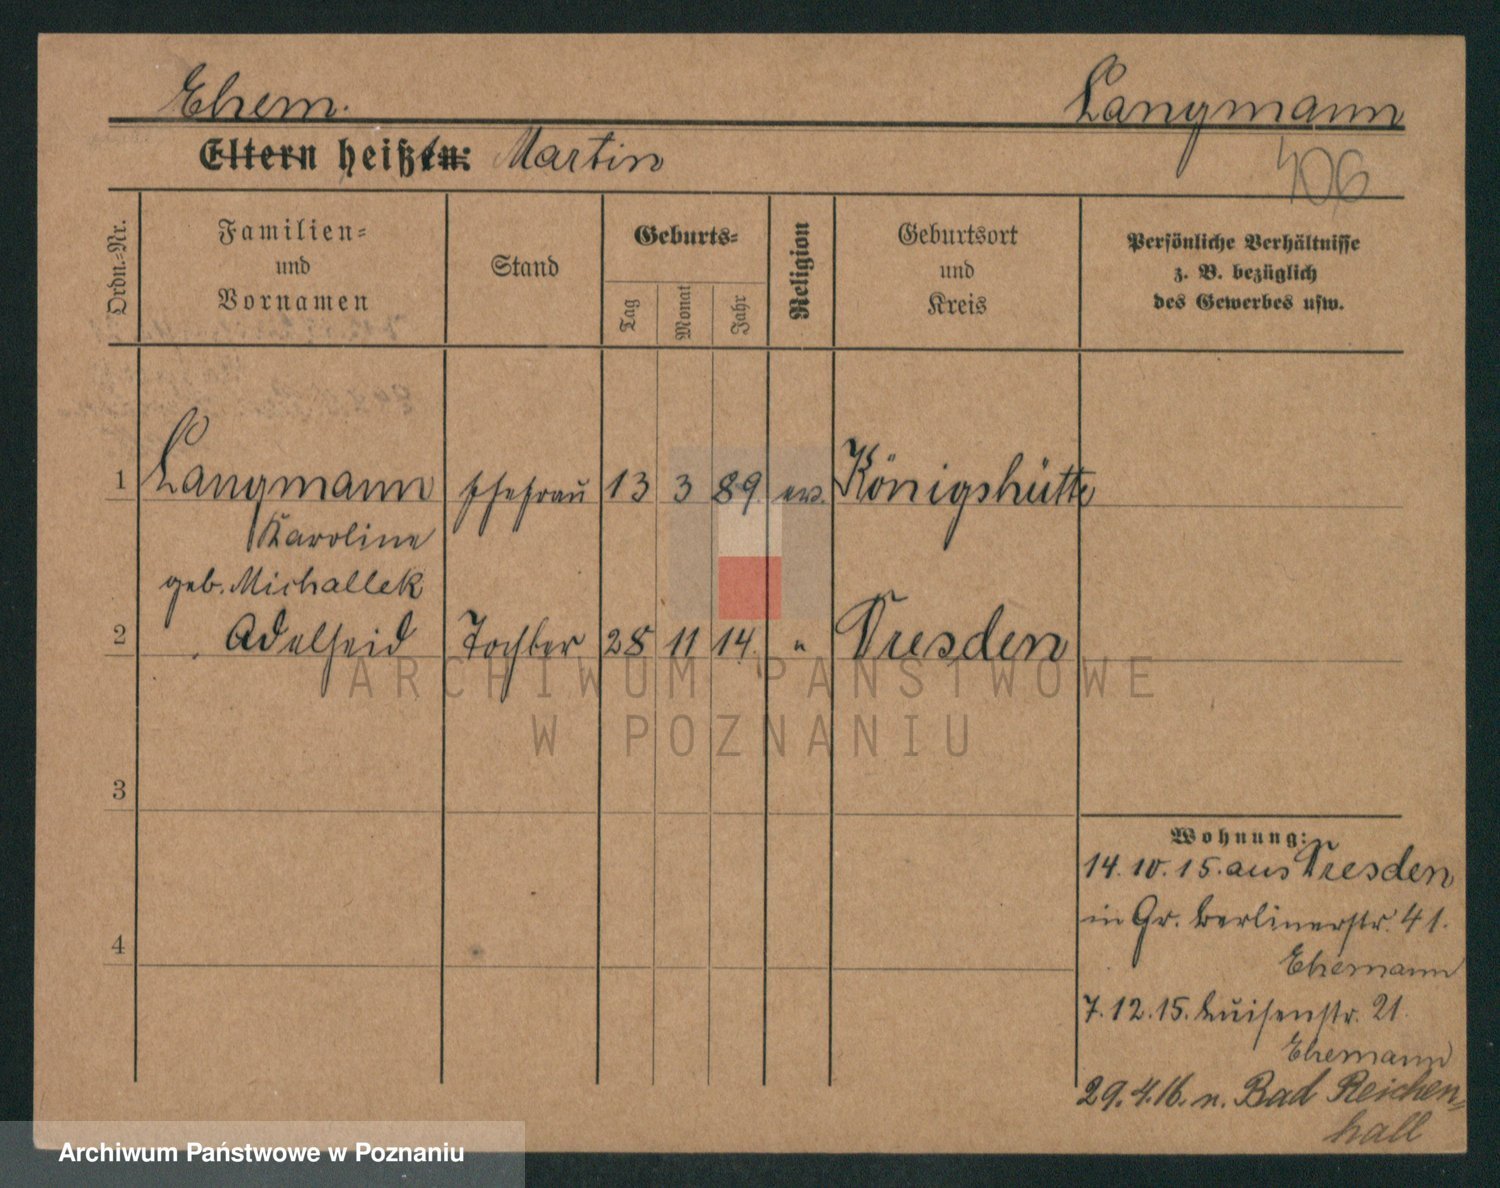 Ehem. Langmann
Eltern heißen: Martin
406
Ordn.-Nr.
Familien=
und
Vornamen
Stand
Geburts=
Tag
Monat
Jahr
Religion
Geburtsort
und
Kreis
Persönliche Verhältnisse
z. B. bezüglich
des Gewerbes usw.
1 Langmann Ehefrau 13 3 89. ev. Königshütte
Karoline
geb. Michallek
2 Adelheid Tochter 28 11 14. " Dresden
ARCHIWUM PAŃSTWOWE
W POZNANIU
3
Wohnung:
14. 10. 15. aus Dresden
in Gr. Berlinerstr. 41.
4
Ehemann
7. 12. 15. Luisenstr. 21.
Ehemann
29. 4. 16. n. Bad Reichen=
hall
Archiwum Państwowe w Poznaniu